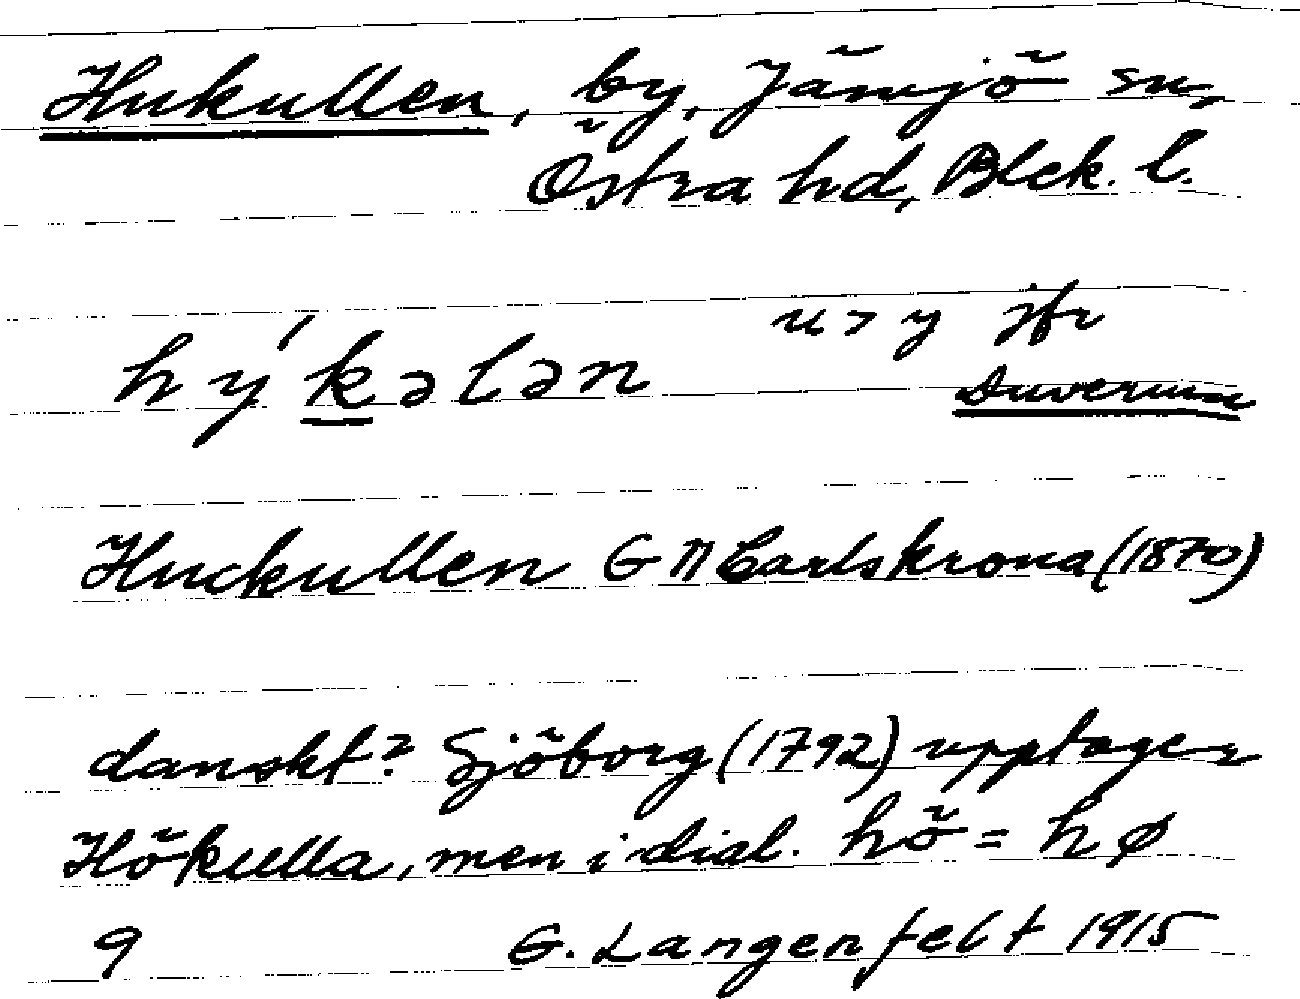 Hukullen, by, Jämjö sn,
Östra hd, Blek. l.
u > y jfr
hy´kələn
Huckullen G M Carlskrona (1870)
danskt? Sjöborg (1792) upptager
Hökulla, men i dial. hö = hø
9 G. Langenfelt 1915